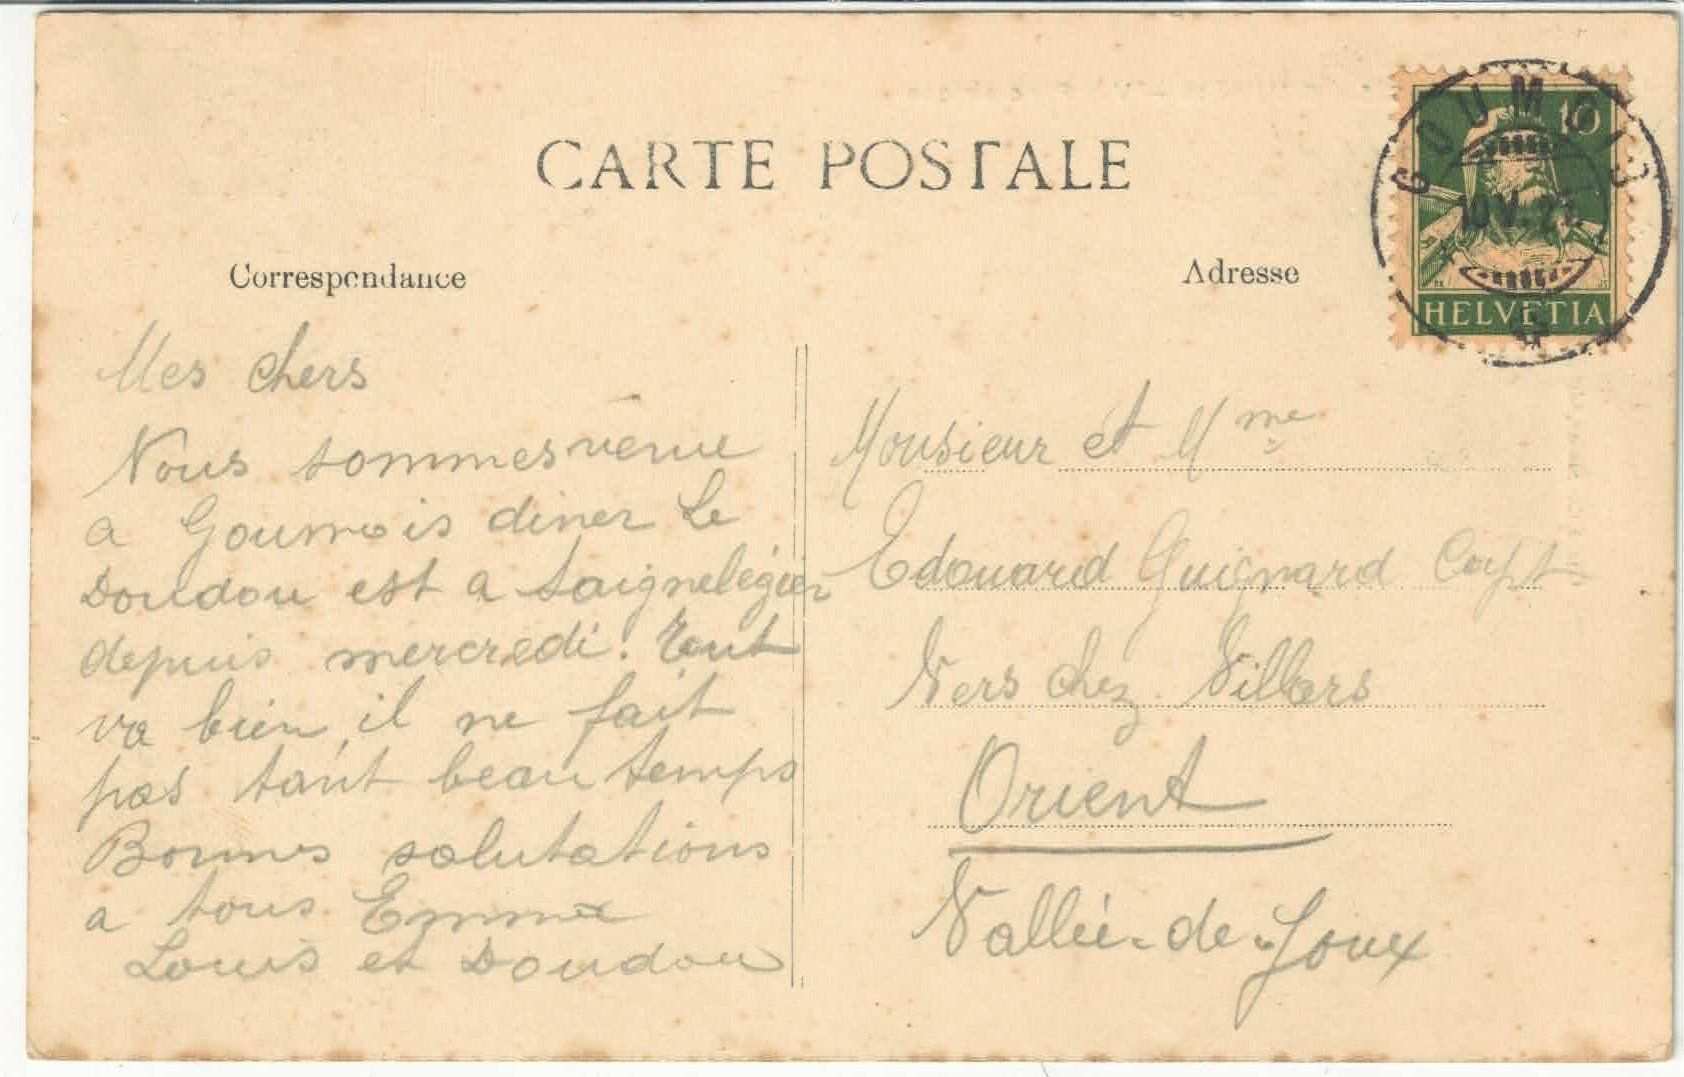 CARTE POSTALE
Correspondance
Mes chers
Nous sommes venue
a Goumois diner Le
Doudou est a Saignelégier
depuis mercredi. Tout
va bien, il ne fait
pas tant beau temps
Bonnes salutations
a tous Emma
Louis et Doudou
Adresse
Monsieur et Mme
Edouard Guignard Capt
Vers chez Villars
Orient
Vallée-de-Joux
GOUMOIS
10
10 V.
HELVETIA